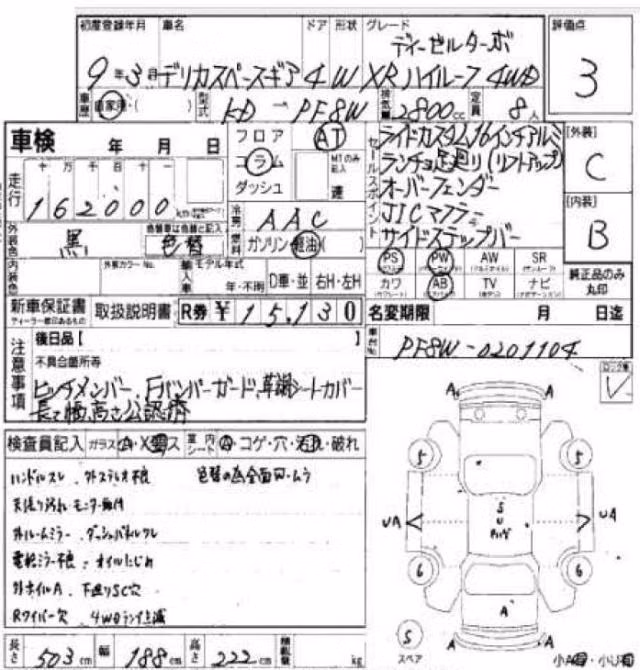 初度登録年月 車名 ドア 形状 グレード 評価点
ディーゼルターボ
9年3月 デリカスペースギア 4 W XRハイルーフ 4WD 3
車歴 自家用・( ) 型式 KD-PF8W 排気量 2800cc 定員 8人
車検 年 月 日
フロア AT
コラム MTのみ記入
ダッシュ 速
走行 十 万 千 百 十 一
162000 km
冷房 AAC
外装色 黒 色替車は色替と記入 色替
燃料 ガソリン・軽油( )
内装色 外装カラーNo. 輸入車 モデル年式 年・不明 D車・並 右H・左H
セールスポイント
ライドカスタム16インチアルミ
ランチョ足廻り(リフトアップ)
オーバーフェンダー
JICマフラー
サイドステップバー
[外装] C
[内装] B
PS PW AW SR
カワ AB TV ナビ
純正品のみ丸印
新車保証書 取扱説明書 R券 ¥15,130
ディーラー印のあるもの
名変期限 月 日迄
車台No. PF8W-0201104
注意事項
後日品【 】
不具合箇所等
ヒッチメンバー、Fバンパーガード、革調シートカバー
長さ幅高さ公認済
検査員記入 ガラス A・X・ス 室内シート A・コゲ・穴・汚れ・破れ
ハンドルスレ 外ステレオ不良 色替の為全面ムラ
天張り汚れ モニター
外ルームミラー ダッシュパネルワレ
電格ミラー不良 オイルにじみ
外ホイルA 下廻りSC穴
Rワイパー欠 4WDランプ点滅
長さ 503cm 幅 188cm 高さ 222cm 積載量 kg
A A
5 5
UA S U UA
6 6
A
S スペア
A A
小A・小U